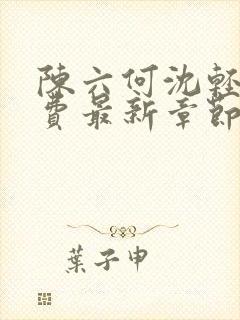 陳六何沈輕
費最新章節
葉子申